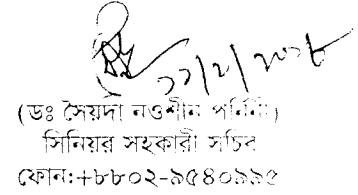 ১১/২/২০১৮
(ডঃ সৈয়দা নওশীন পর্নিনী)
সিনিয়র সহকারী সচিব
ফোন:+৮৮০২-৯৫৪০৯৯৫